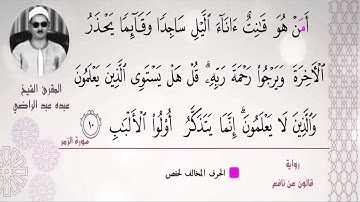 أَمَنْ هُوَ قَٰنِتٌ ءَانَآءَ اَ۬ليْلِ سَاجِداٗ وَقَآئِماٗ يَحْذَرُ
اُ۬لْأٓخِرَةَ وَيَرْجُواْ رَحْمَةَ رَبِّهِۦۗ قُلْ هَلْ يَسْتَوِى اِ۬لذِينَ يَعْلَمُونَ
وَالذِينَ لَا يَعْلَمُونَۗ إِنَّمَا يَتَذَكَّرُ أُوْلُواْ اُ۬لْأَلْبَٰبِۖ ١٠
المقرئ الشيخ
عبده عبد الراضي
سورة الزمر
رواية
قالون عن نافع
الحرف المخالف لحفص